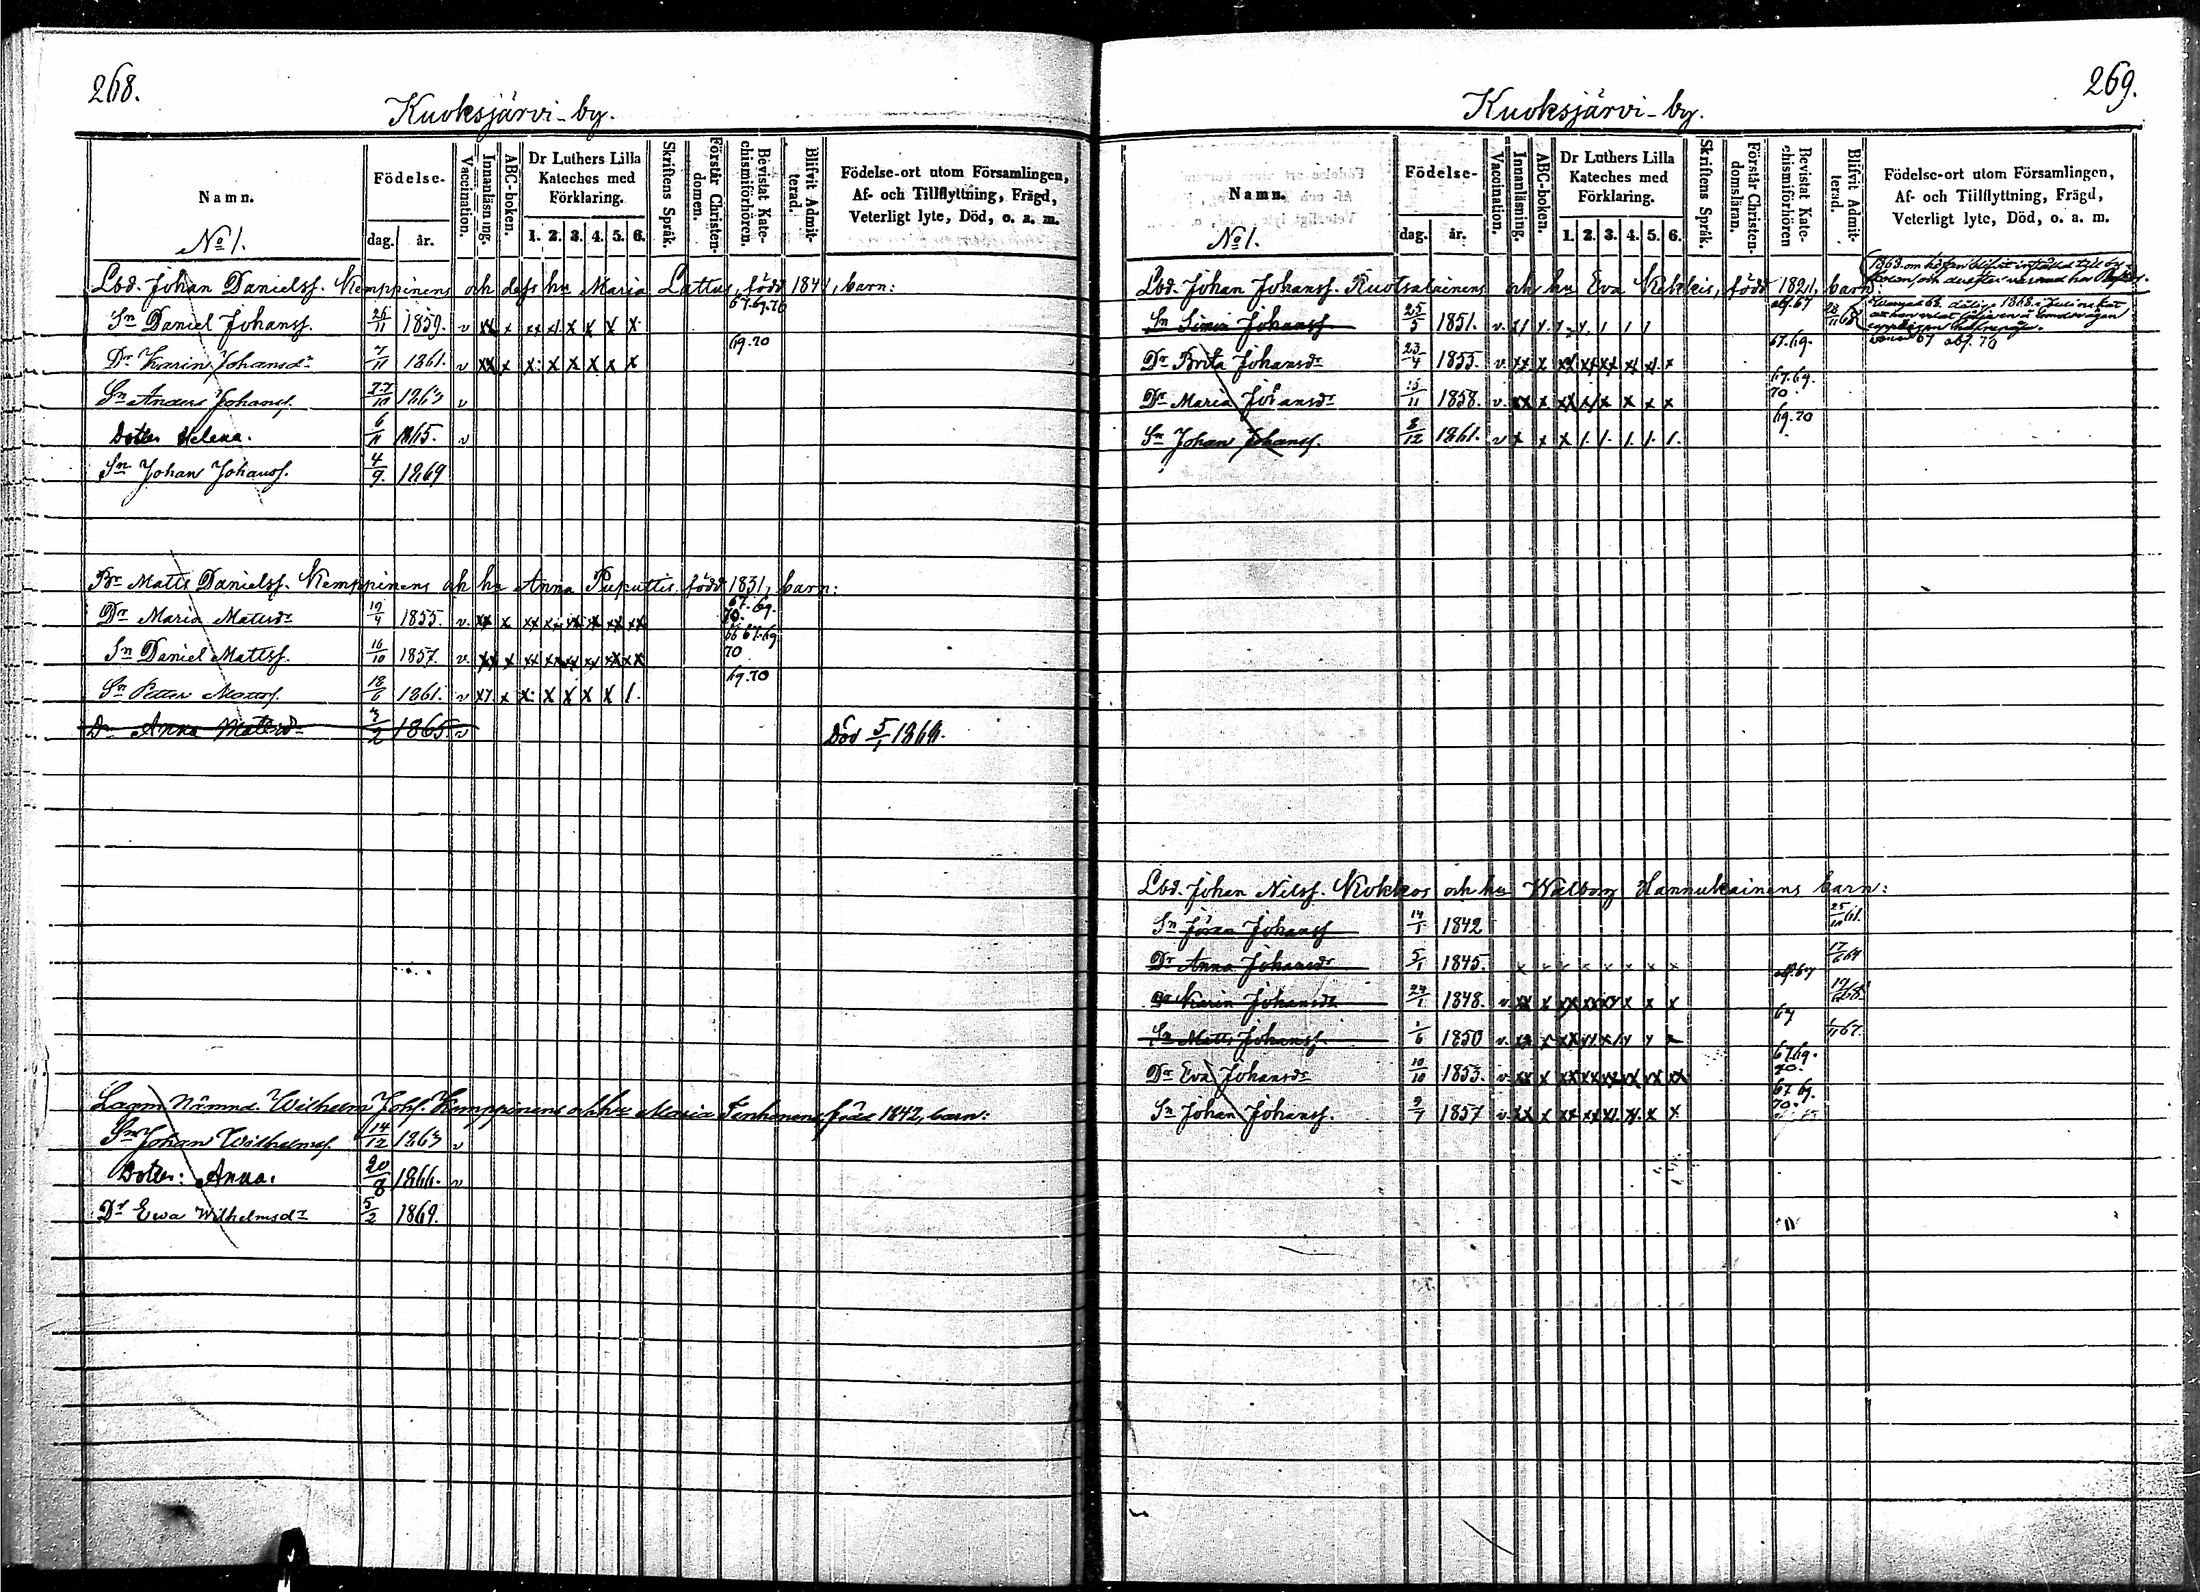 268.
Kuoksjärvi-by.
Namn.
No 1.
Födelse-
dag. år.
Vaccination.
Innanläsning.
ABC-boken.
Dr Luthers Lilla
Kateches med
Förklaring.
1. 2. 3. 4. 5. 6.
Skriftens Språk.
Förstår Christen-
domen.
Bevistat Kate-
chismiförhören.
Blifvit Admit-
terad.
Födelse-ort utom Församlingen,
Af- och Tillflyttning, Frägd,
Veterligt lyte, Död, o. a. m.
Lbd. Johan Danielss. Kemppinens och dess hu Maria Lattus, född 1841, barn:
Sn Daniel Johanss. 26/11 1859. v xx x xx x/ x x x x 67.69.70
Dr Karin Johansdr 7/11 1861. v xx x x: x x x x x 69.70
Sn Anders Johanss. 27/10 1863 v
Dotter Helena. 6/11 1865. v
Sn Johan Johanss. 4/9. 1869
Br Matts Danielss. Kemppinens och hu Anna Puputtis född 1831, barn:
Dr Maria Matsdr 19/4 1855. v. xx x xx x xx xx xx xx 67.69.
70.
Sn Daniel Mattss. 16/10 1857. v. xx x xx xx xx xx xx xx 66 67.69
70
Sn Petter Mattss. 18/6 1861. v xx x x: x x x x /. 69.70
Dr Anna Matsdr 7/2 1865 v Död 5/1 1868.
Lagm Nämnd. Wilhelm Johss. Kemppinens och hu Maria Tenhonens född 1842, barn:
Sn Johan Wilhelmss. 14/12 1863 v
Dotter: Anna. 20/8 1866. v
Dr Ewa Wilhelmsdr 5/2 1869.
269.
Kuoksjärvi-by.
Namn.
No 1.
Födelse-
dag. år.
Vaccination.
Innanläsning.
ABC-boken.
Dr Luthers Lilla
Kateches med
Förklaring.
1. 2. 3. 4. 5. 6.
Skriftens Språk.
Förstår Christen-
domsläran.
Bevistat Kate-
chismiförhören
Blifvit Admit-
terad.
Födelse-ort utom Församlingen,
Af- och Tillflyttning, Frägd,
Veterligt lyte, Död, o. a. m.
Lbd. Johan Johanss. Ruotsalainens och hu Eva Kekkis, född 1821, barn:
Sn Simon Johanss 25/5 1851. v. abs. 67
Dr Brita Johansdr 23/4 1855. v. xx x xx xx xx xx x/. x 67.69.
Dr Maria Johansdr 15/11 1858. v. xx x xx x/ x x x x 67.69.
70.
Sn Johan Johanss. 8/12 1861. v x x x /. /. /. /. /. 69.70
Lbd. Johan Nilss. Kokkos och hu Walborg Hannukainens barn:
Sn Jöran Johanss 14/1 1842 25/10 61.
Dr Anna Johansdr 5/1 1845. x x x x x x x x 17/6 64
Dr Karin Johansdr 24/1 1848. v. xx x xx xx xx x x x abs. 67
Sn Matts Johanss. 1/6 1850 v. 67 1/11 67.
Dr Eva Johansdr 10/10 1853. v. xx x xx xx xx xx xx xx 67.69.
70.
Sn Johan Johanss. 9/7 1857 v. xx x xx xx x/. x/. x x 67 69.
70.